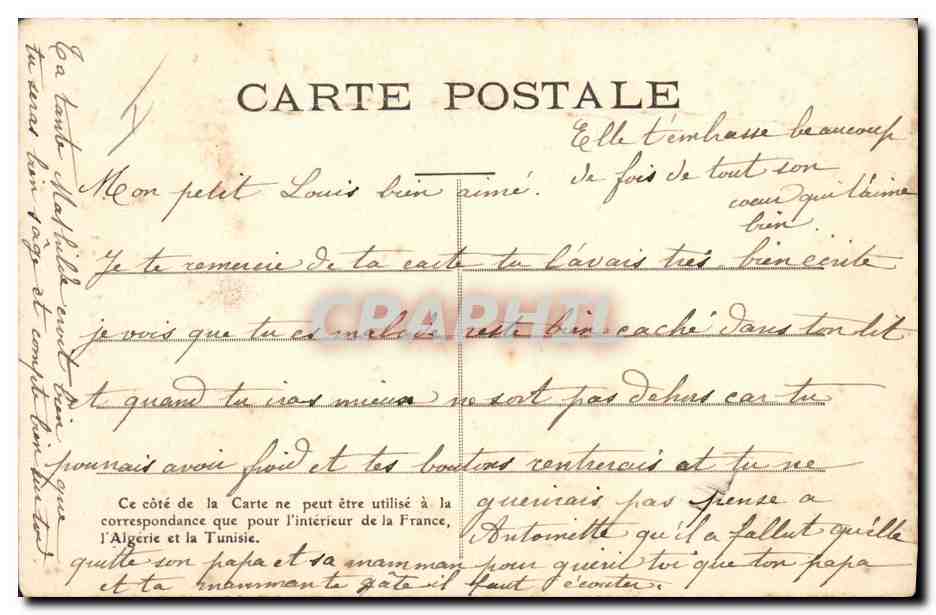 CARTE POSTALE
Mon petit Louis bien aimé.
Je te remercie de ta carte tu l'avais très bien écrite
je vois que tu es malade reste bien caché dans ton lit
et quand tu iras mieux ne sort pas dehors car tu
pourrais avoir froid et tes boutons rentrerais et tu ne
guerirais pas pense a
Antoinette qu'il a fallut qu'elle
quitte son papa et sa mamman pour guérir toi que ton papa
et ta mammante gâte il faut écouter.
Ta tante Mathilde croit bien que
tu seras bien sâge et compte bien sur toi.
Elle t'embrasse beaucoup
de fois de tout son
coeur qui t'aime
bien.
Ce côté de la Carte ne peut être utilisé à la
correspondance que pour l'intérieur de la France,
l'Algérie et la Tunisie.
CPAPHIL